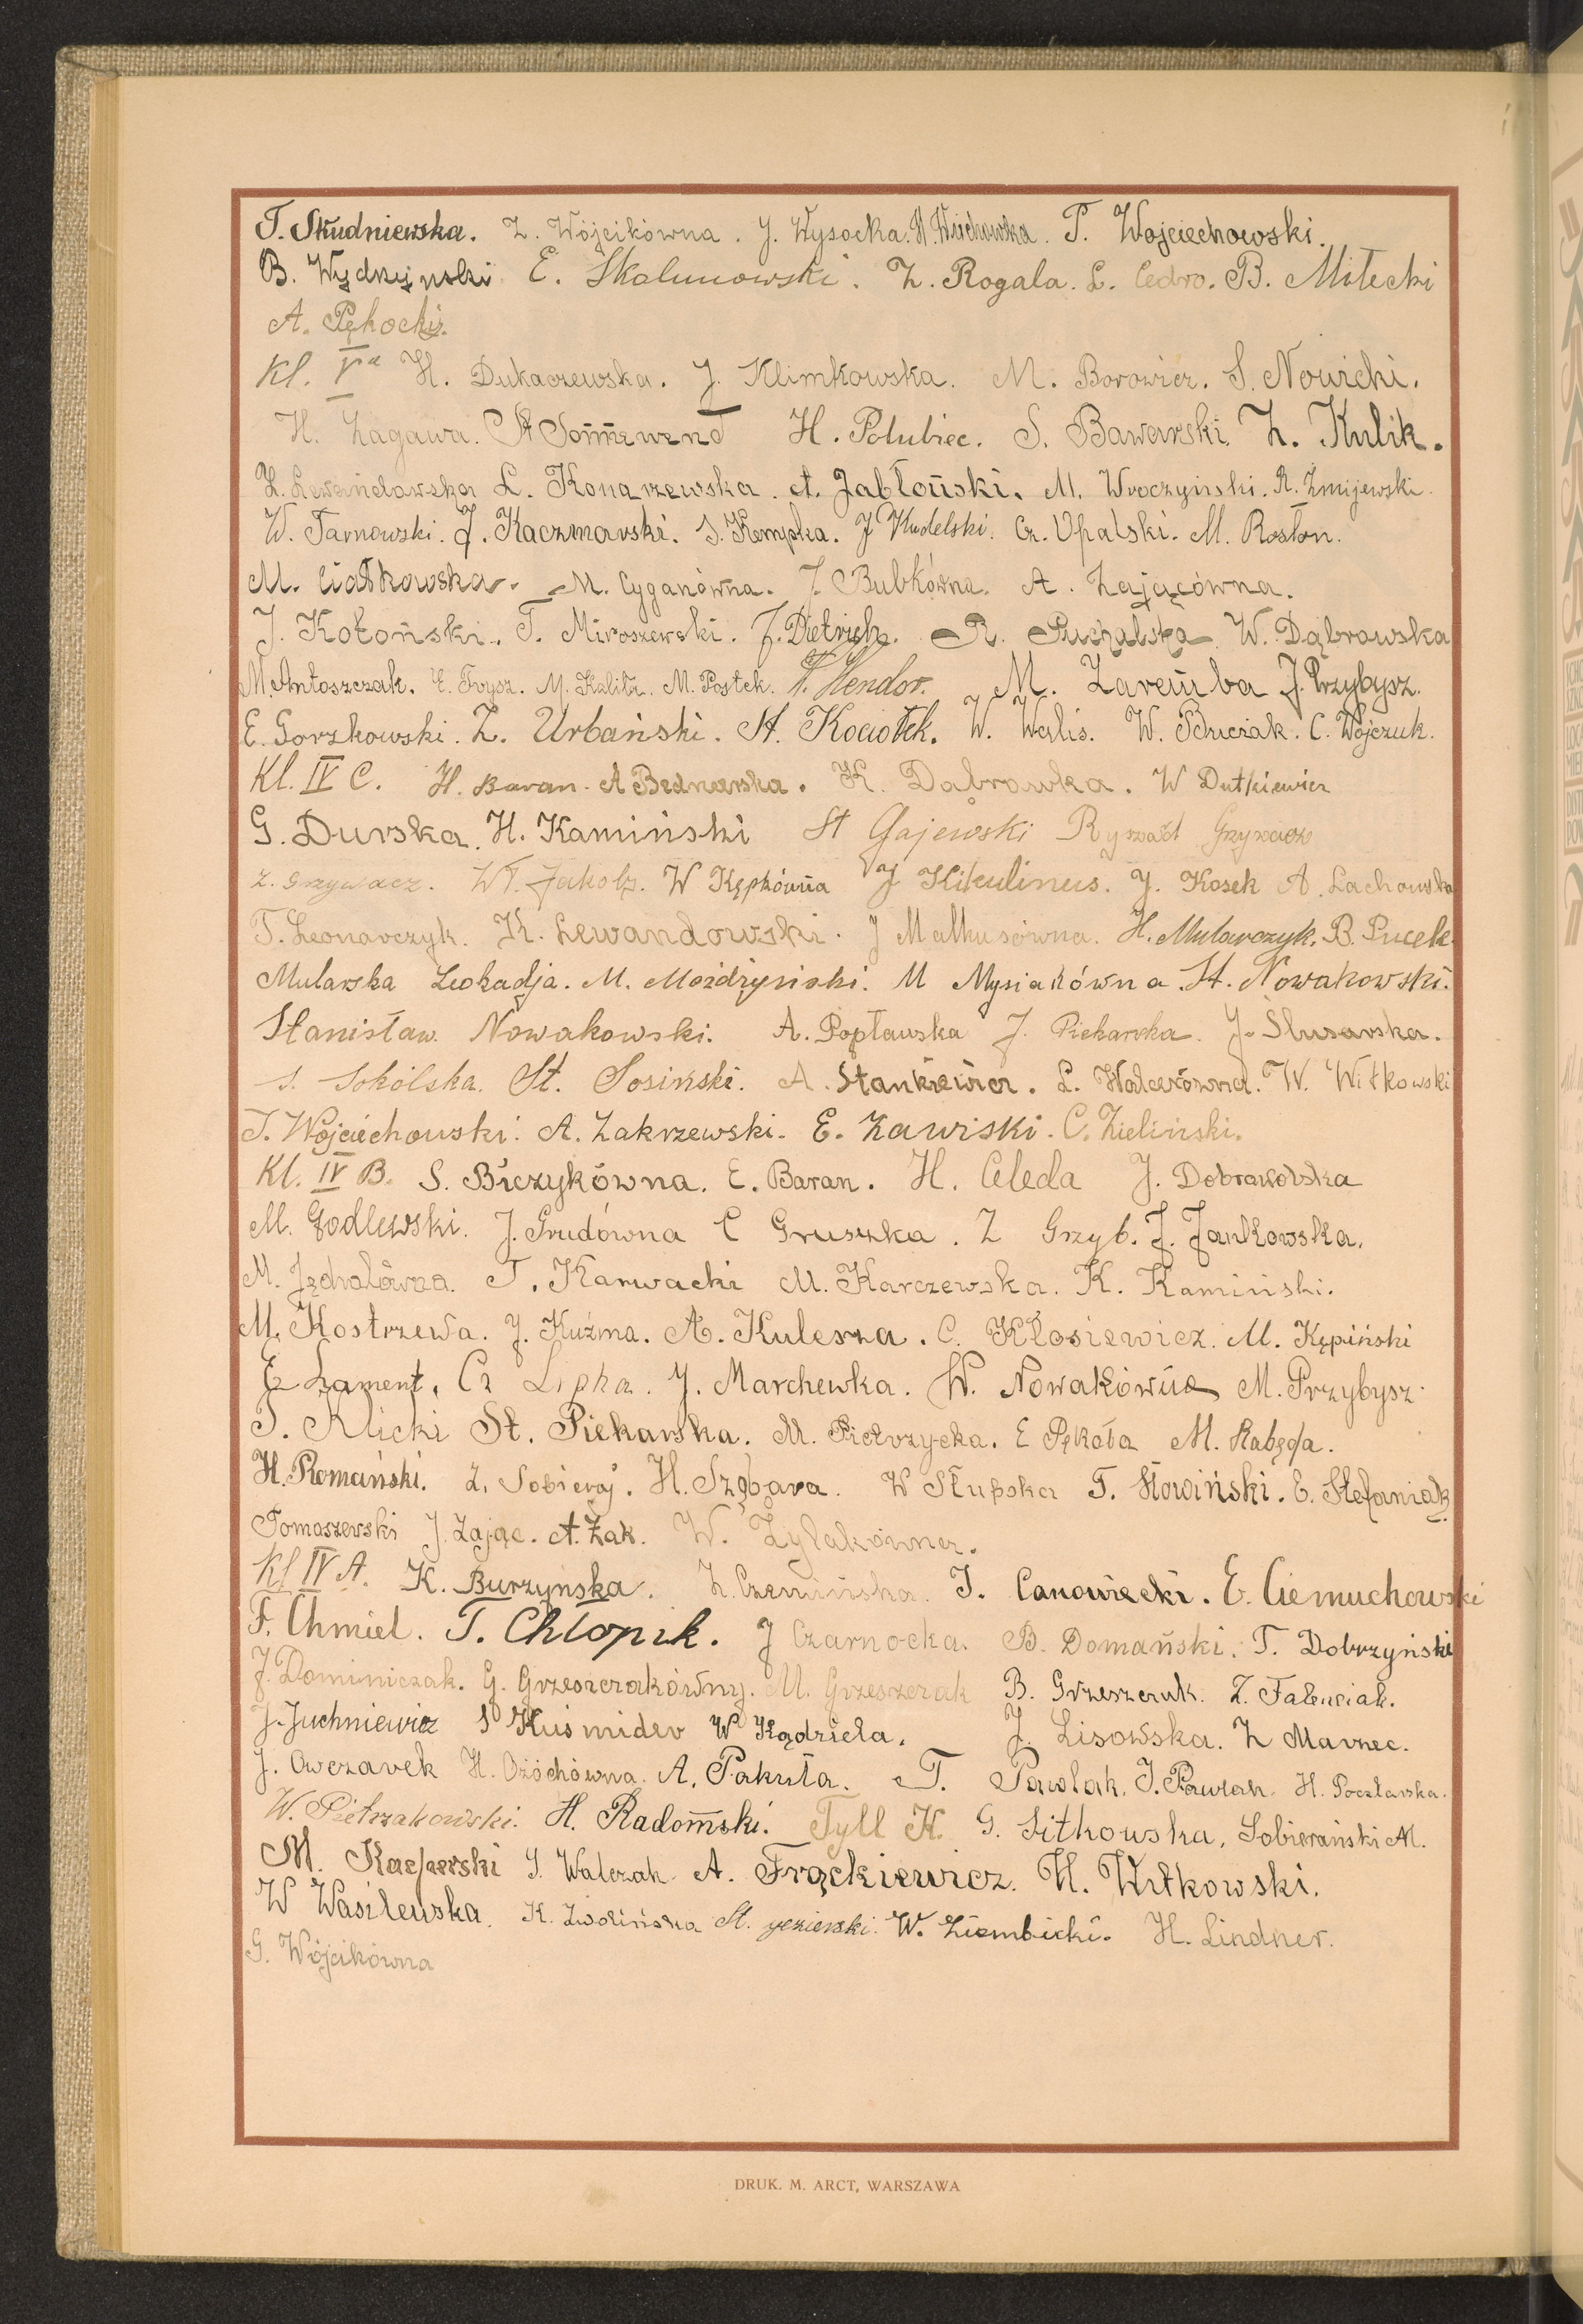 T. Skudniewska. Z. Wójcikówna. J. Wysocka. W. Wiechowska. T. Wojciechowski.
B. Wydrzyński E. Skolimowski. Z. Rogala. L. Cedro. B. Miłecki
A. Pękocki.
Kl. Va H. Dukaczewska. J. Klimkowska. M. Borowicz. S. Nowicki.
H. Zagawa. St Sommewend H. Polubiec. S. Bawarski. Z. Kulik.
Z. Lewandowska L. Konarzewska. A. Jabłoński. M. Wroczyński. R. Żmijewski.
W. Tarnowski. J. Kaczmarski. S. Kempka. J Kudelski. Cz. Opalski. M. Rosłon.
M. Ciołkowska. M. Cyganówna. J. Bubkówna. A. Zającówna.
J. Kotoński. T. Miroszewski. J. Dietrich. R. Puchalska W. Dąbrowska
M. Antoszczak. E. Frysz. M. Kalita. M. Postek. T. Hendor. M. Zaremba J. Przybysz.
E. Gorzkowski. Z. Urbański. St. Kociołek. W. Walis. W. C. Wójczuk.
Kl. IV C. H. Baran. A Bednarska. K. Dąbrowka. W Dutkiewicz
G. Durska. H. Kamiński St Gajewski Ryszard Grzywacz
Z. Grzywacz. Wł. Jakob. W Kępkówna J Kikulinus. J. Kosek A. Lachowska
T. Leonarczyk. K. Lewandowski. J Malkusówna. H. Mularczyk. B. Pucek
Mularska Leokadja. M. Możdżyński. M Mysiakówna. St. Nowakowski.
Stanisław Nowakowski. A. Popławska J. Piekarska. J. Ślusarska.
S. Sokólska. St. Sosiński. A. Stankiewicz. L. Walcerówna. W. Witkowski
T. Wojciechowski. A. Zakrzewski. E. Zawiski. C. Zieliński.
Kl. IV B. S. Biczykówna. E. Baran. H. Celeda J. Dobrowolska
M. Godlewski. J. Grudówna C Gruszka. Z Grzyb. J. Jankowska.
M. Jędralówna. T. Karwacki M. Karczewska. K. Kamiński.
M. Kostrzewa. J. Kuźma. A. Kulesza. C. Kłosiewicz. M. Kępiński
E Lament. Cz Lipka. J. Marchewka. W. Nowakówna M. Przybysz.
T. Klicki St. Piekarska. M. Pietrzycka. E Pękała M. Rabęda.
H. Romański. Z. Sobieraj. H. Szgbara. W Słupska T. Słowiński. E. Stefaniak
Tomaszewski J. Zając. A. Żak. W. Żylakówna.
Kl IV A. K. Burzyńska. Z. Czemińska. J. Canowiecki. E. Ciemuchowski
F. Chmiel. T. Chłopik. J Czarnocka. B. Domański. T. Dobrzyński
J. Dominiczak. G. Grzeszczakówny. M. Grzeszczak B. Grzeszczuk. Z. Falenciak.
J. Juchniewicz S Kuśmider W Kądziela. J. Lisowska. Z Marzec.
J. Owczarek H. Ożóchówna. A. Pakuła. T. Pawlak. J. Pawlak. H. Pocztarska.
W. Pietrzakowski. H. Radomski. Tyll K. G. Sitkowska. Sobierański M.
M. Kacperski S. Walczak. A. Frąckiewicz. H. Witkowski.
W Wasilewska. K. Zwolińska St. Jezierski. W. Ziembicki. H. Lindner.
G. Wójcikówna
DRUK. M. ARCT, WARSZAWA